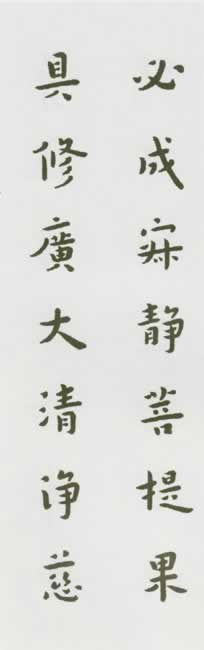 必成寂静菩提果
具修廣大清淨慈